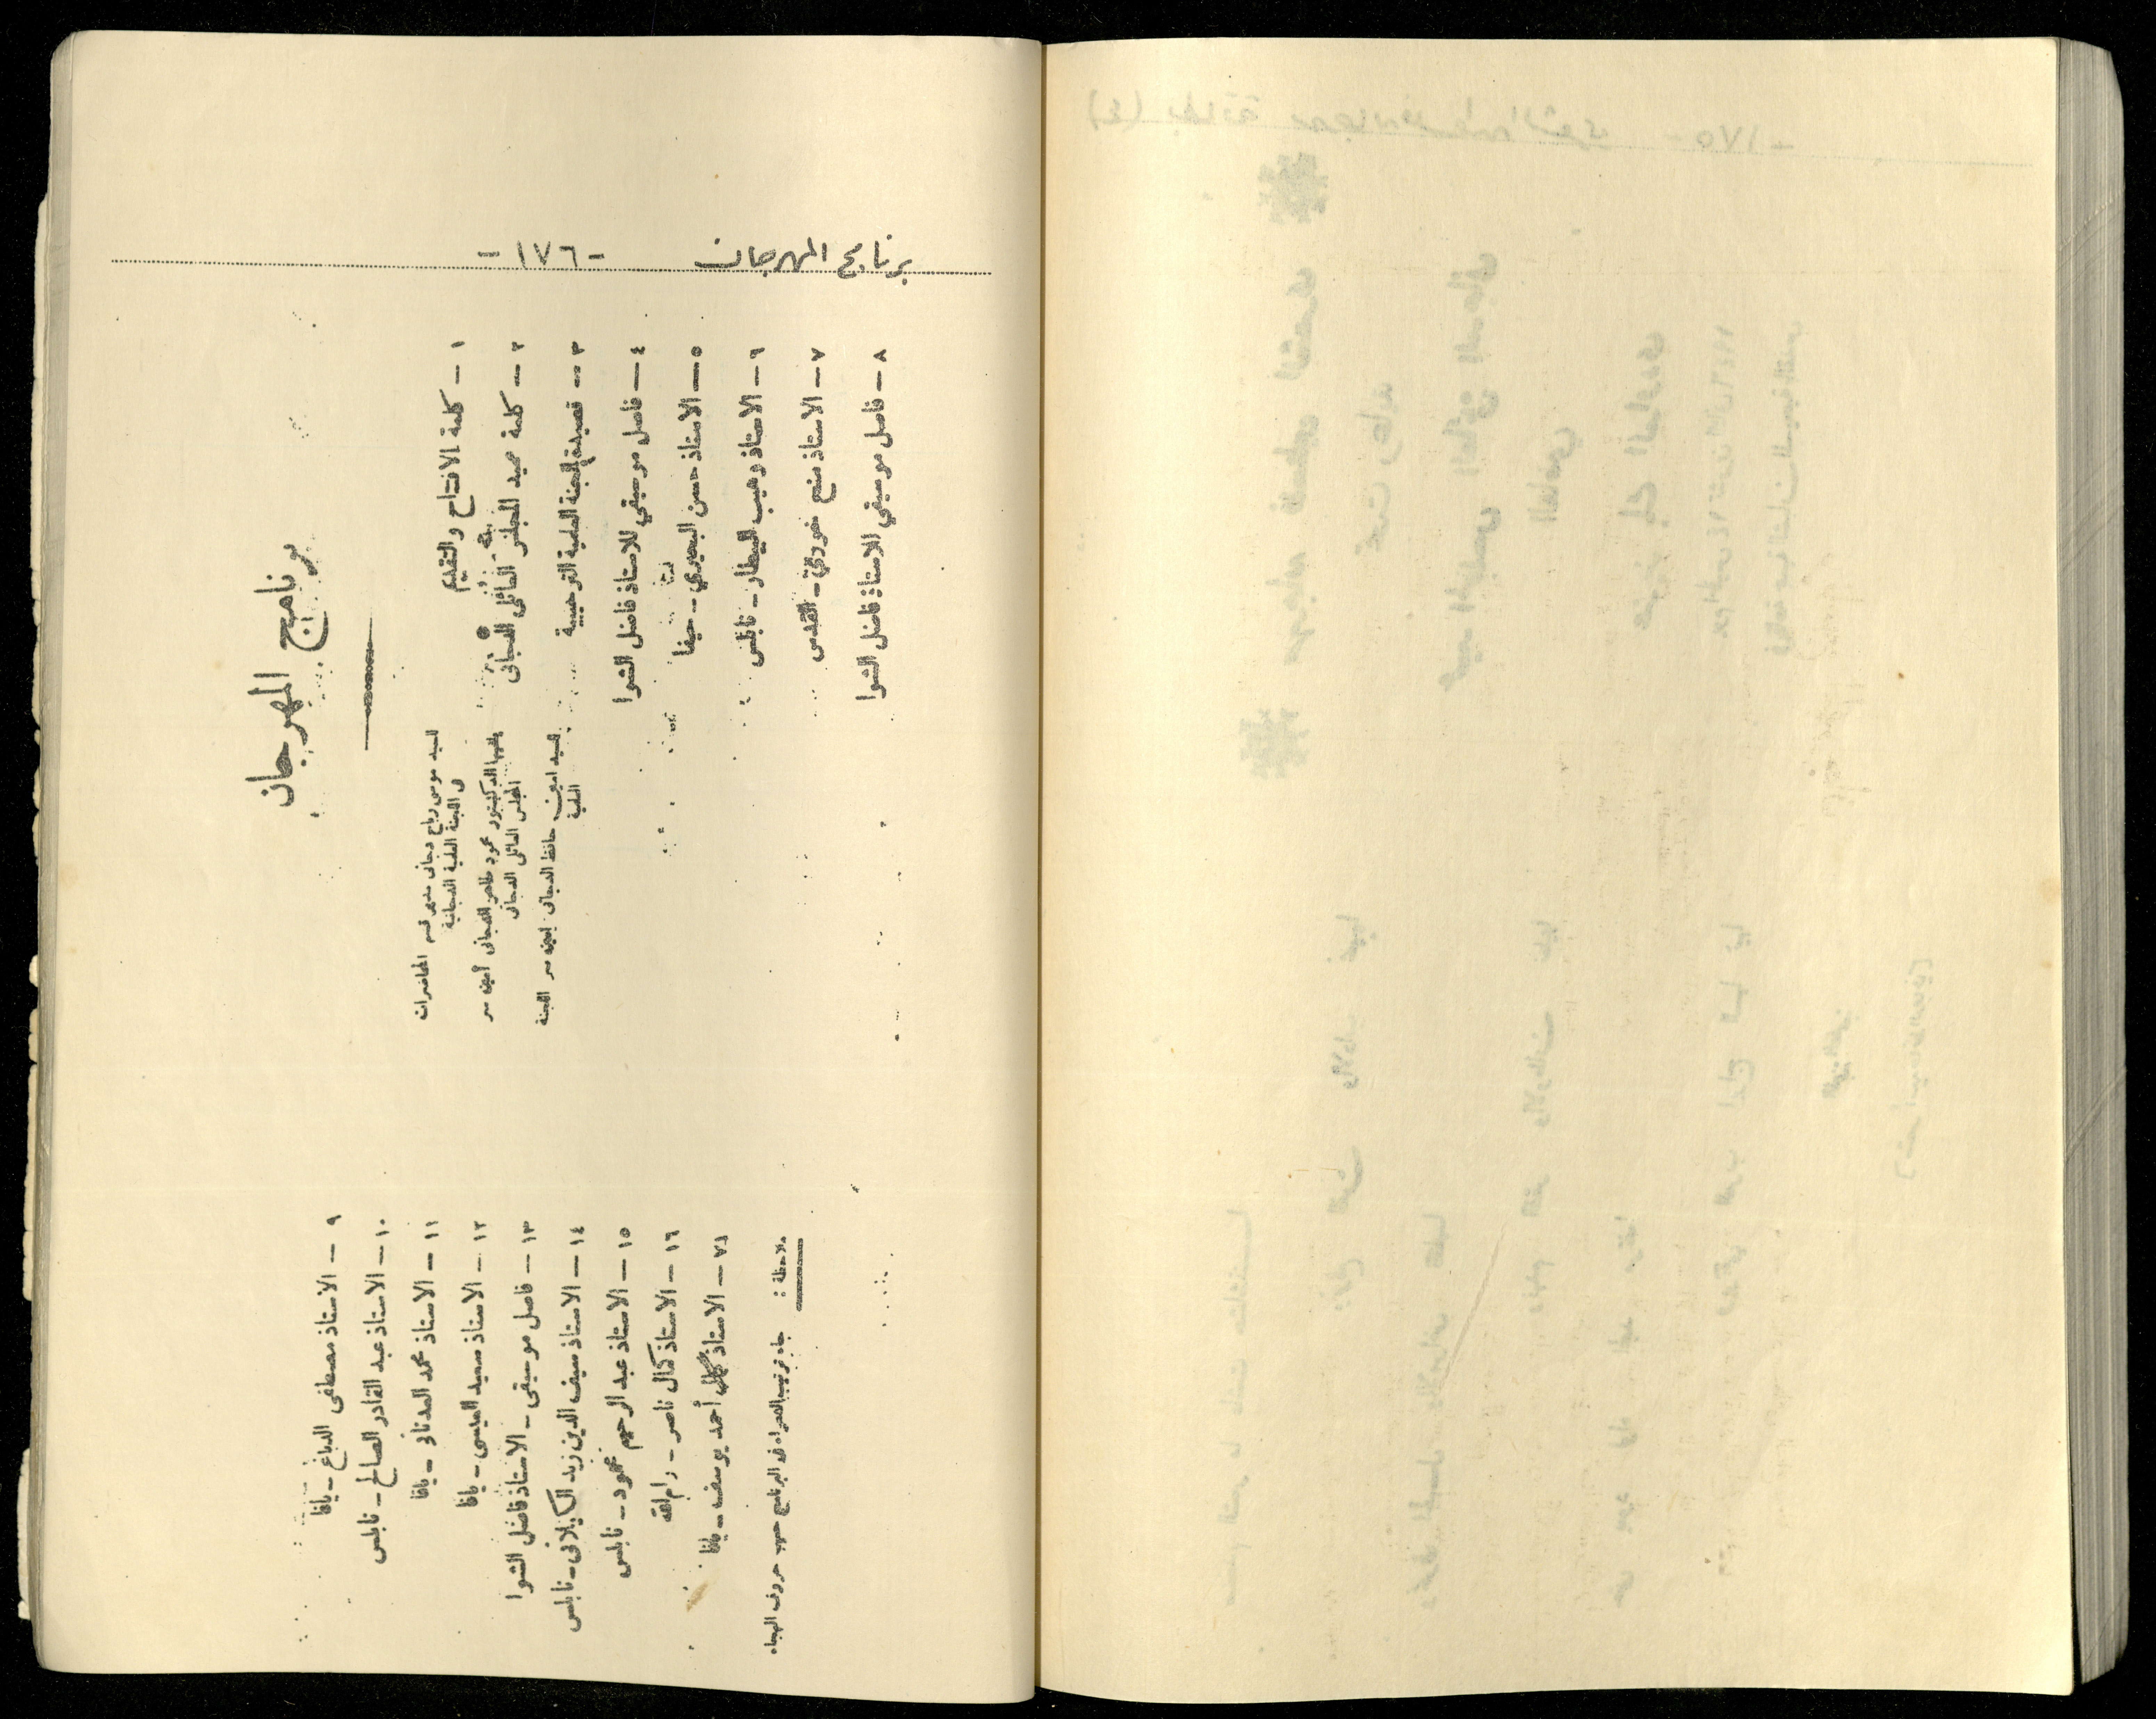 برنامج المهرجان -١٧٦-
برنامج المهرجان
١ - كلمة الافتتاح والتقديم
السيد موسى رباح دجاني مدير قسم المحاضرات
في اللجنة الفنية الدجانية
٢ - كلمة عميد المجلس العائلي الدجاني
يلقيها الدكتور محمود طاهر الدجاني أمين سر
المجلس العائلي الدجاني
٣ - قصيدة اللجنة الفنية الترحيبية
السيد امين حافظ الدجاني امين سر اللجنة
الفنية
٤ - فاصل موسيقي للاستاذ فاضل الشوا
٥ - الاستاذ حسن البحيري - حيفا
٦ - الاستاذ وهيب البيطار - نابلس
٧ - الاستاذ - القدس
٨ - فاصل موسيقي الاستاذ فاضل الشوا
٩ - الاستاذ مصطفى الدباغ - يافا
١٠ - الاستاذ عبد القادر الصالح - نابلس
١١ - الاستاذ محمد العدناني - يافا
١٢ - الاستاذ سعيد العيسى - يافا
١٣ - فاصل موسيقى - الاستاذ فاضل الشوا
١٤ - الاستاذ سيف الدين زيد الكيلاني - نابلس
١٥ - الاستاذ عبد الرحيم محمود - نابلس
١٦ - الاستاذ كمال ناصر - رام الله
١٧ - الاستاذ أحمد يوسف - يافا
ملاحظة : جاء ترتيب الشعراء في البرنامج حسب حروف الهجاء